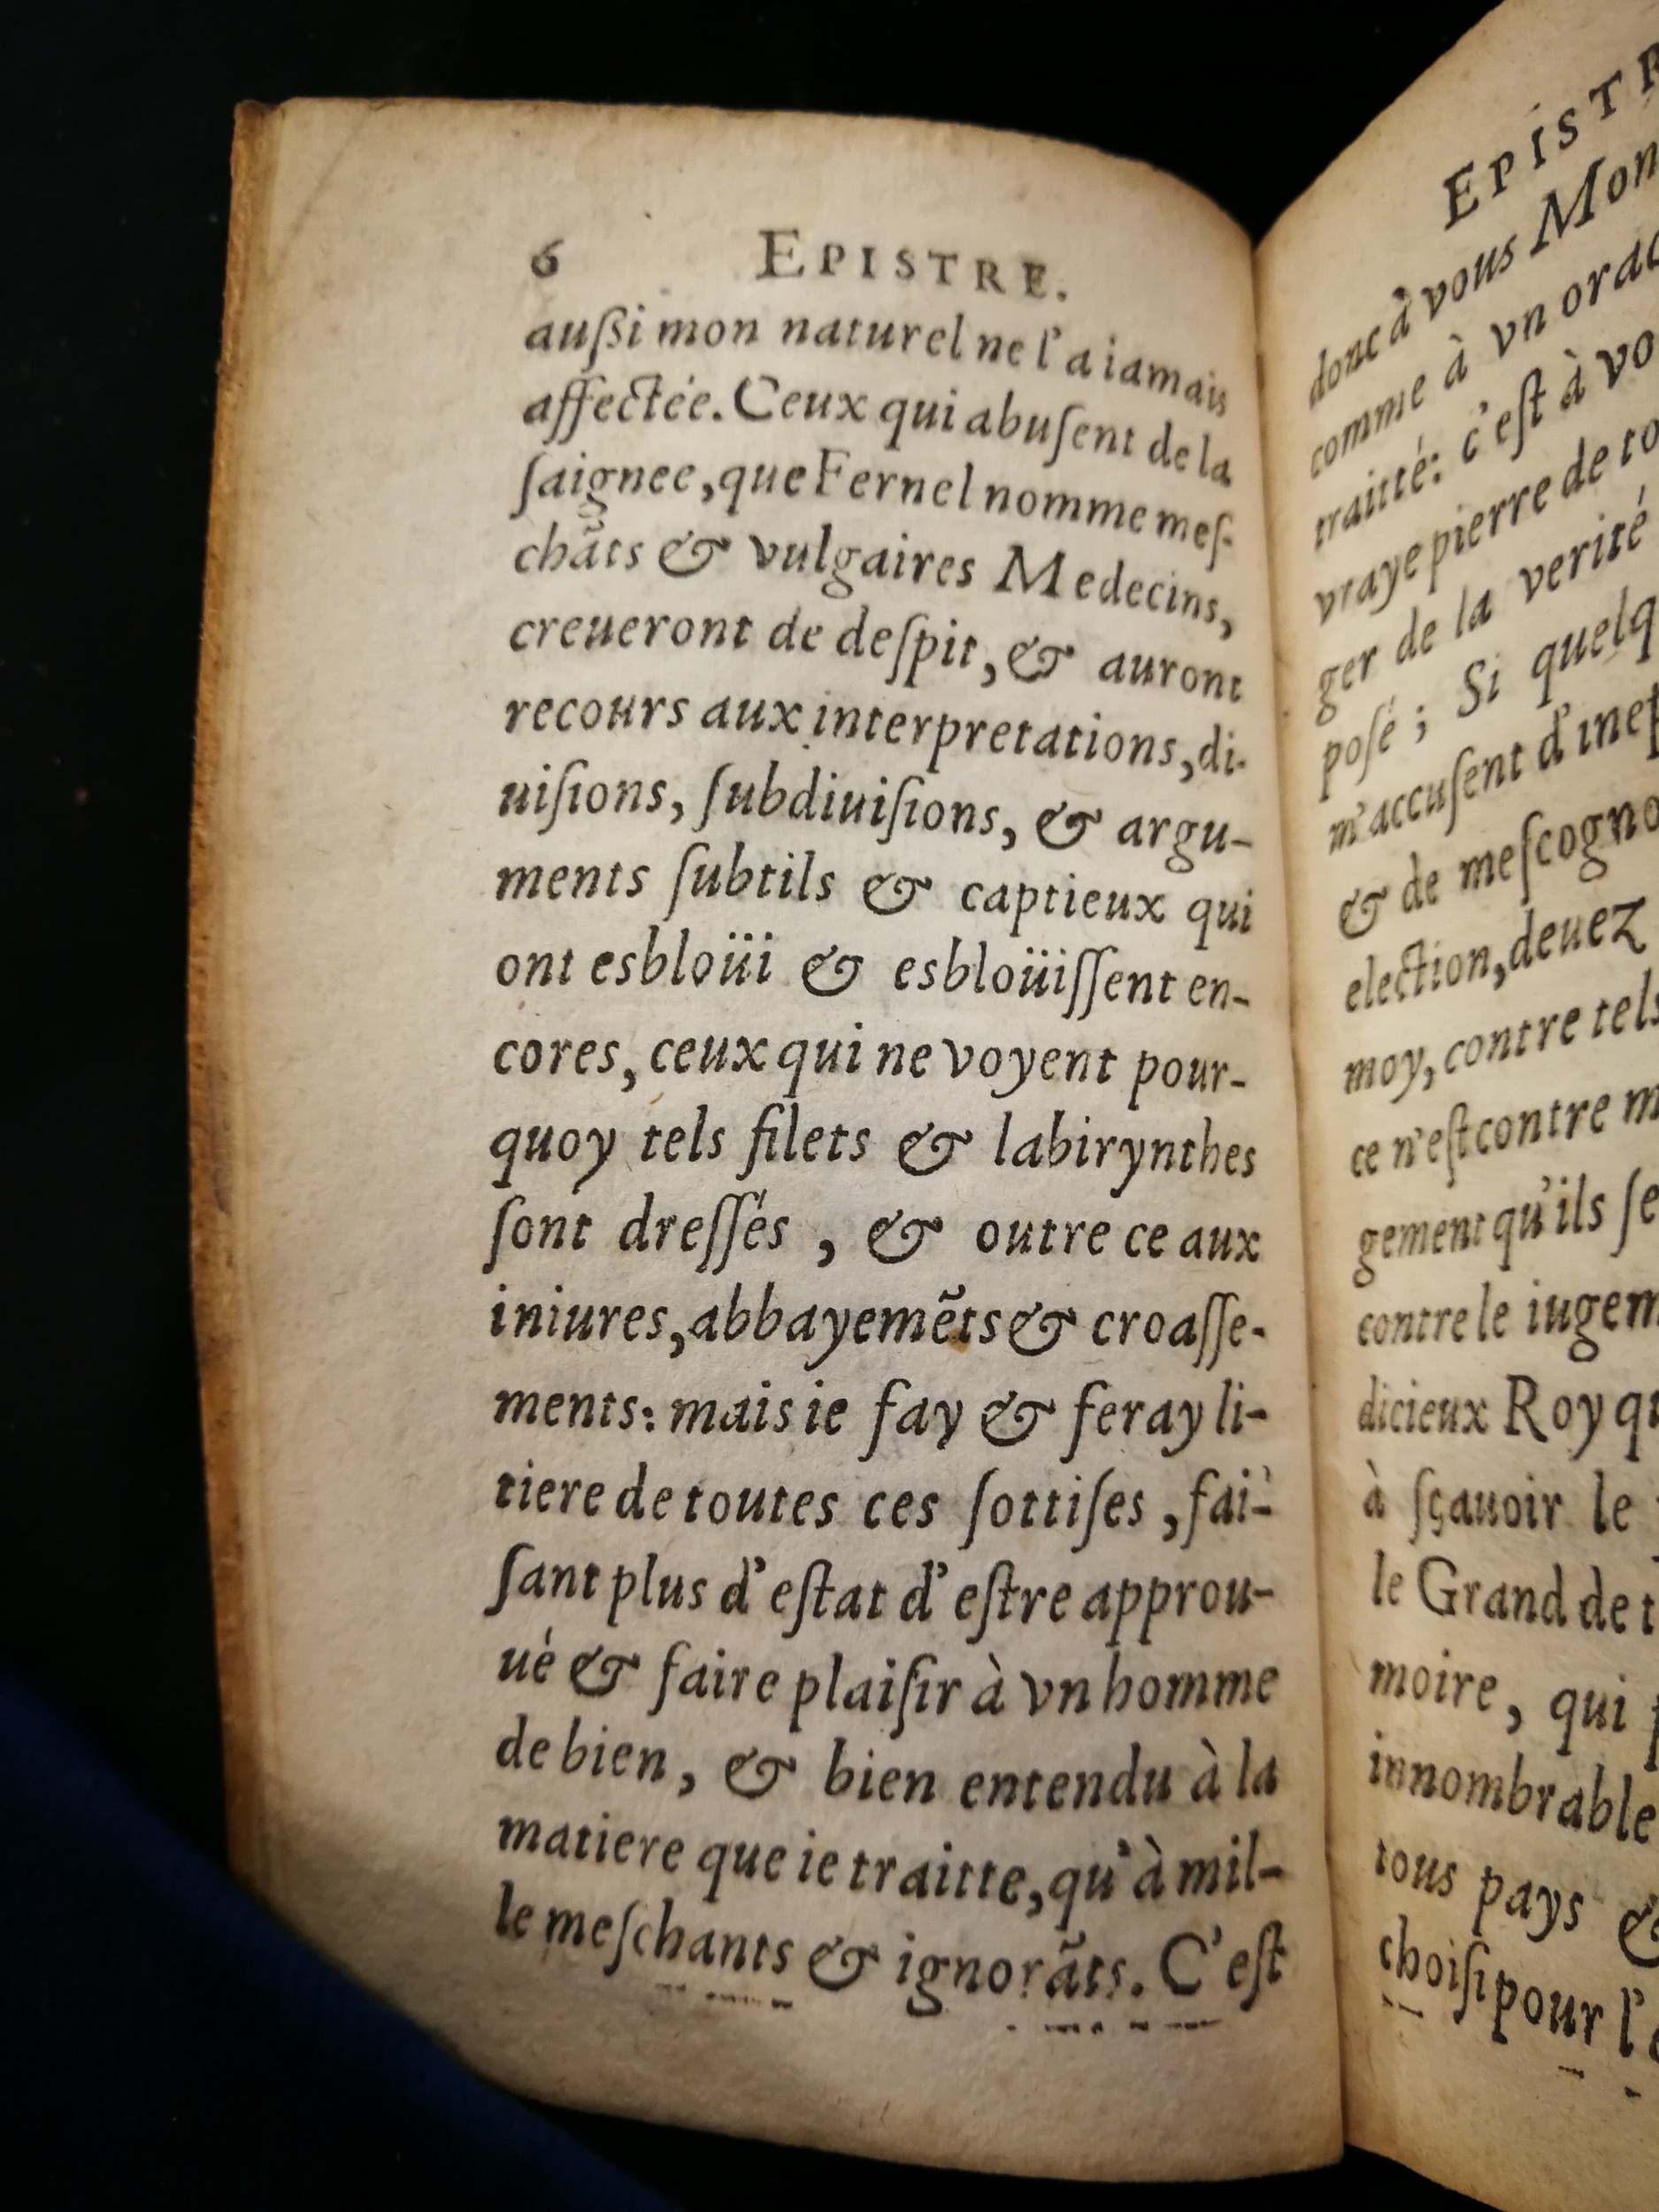 6 EPISTRE.
außi mon naturel ne l'a iamais
affectée. Ceux qui abuſent de la
ſaignee, que Fernel nomme meſ-
chãts & vulgaires Medecins,
creueront de deſpit, & auront
recours aux interpretations, di-
uiſions, ſubdiuiſions, & argu-
ments ſubtils & captieux qui
ont esbloüi & esbloüiſſent en-
cores, ceux qui ne voyent pour-
quoy tels filets & labirynthes
ſont dreſſés, & outre ce aux
iniures, abbayemẽts & croaſſe-
ments: mais ie fay & feray li-
tiere de toutes ces ſottiſes, fai-
ſant plus d'eſtat d'eſtre approu-
ué & faire plaiſir à vn homme
de bien, & bien entendu à la
matiere que ie traitte, qu'à mil-
le meſchants & ignorãts. C'eſt
EPISTR
donc à vous Mon
comme à vn orac
traitté: c'eſt à vo
vraye pierre de to
ger de la verité
poſé; Si quelq
m'accuſent d'inep
& de meſcogno
election, deuez
moy, contre tels
ce n'eſt contre m
gement qu'ils ſe
contre le iugem
dicieux Roy qu
à ſçauoir le
le Grand de t
moire, qui p
innombrable
tous pays &
choiſi pour l'